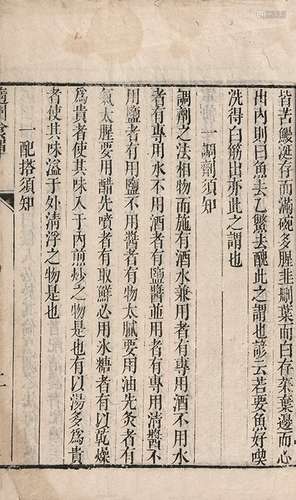 皆苦鰻涎存而滿碗多腥韭刪葉而白存菜棄邊而心
出内則曰魚去乙鱉去醜此之謂也諺云若要魚好喫
洗得白筋出亦此之謂也
一調劑須知
調劑之法相物而施有酒水兼用者有專用酒不用水
者有專用水不用酒者有鹽醬並用者有專用清醬不
用鹽者有用鹽不用醬者有物太膩要用油先灸者有
氣太腥要用醋先噴者有取鮮必用氷糖者有以乾燥
為貴者使其味入于内煎炒之物是也有以湯多為貴
者使其味溢于外清浮之物是也
一配搭須知